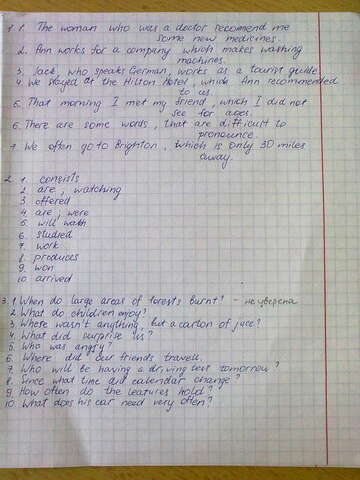 1. 1. The woman who was a doctor recomend me
some new medicines.
2. Ann works for a company which makes washing
machines.
3. Jack, who speaks German, works as a tourist guide.
4. We stayed at the Hilton Hotel, which Ann recommended
to us.
5. That morning I met my friend, which I did not
see for ages.
6. There are some words, that are difficult to
pronounce.
7. We often go to Brighton, which is only 30 miles
away.
2. 1 consists
2 are, watching
3 offered
4 are, were
5 will wath
6 studied
7 work
8 produces
9 won
10 arrived
3. 1 When do large areas of forests burnt? - не уверена
2 What do children enjoy?
3 Where wasn't anything, but a carton of juce?
4 What did surprise us?
5 Who was angry?
6 Where did our friends travell.
7 Who will be having a driving test tomorrow?
8 Since what time did calendar change?
9 How often do the leatures hold?
10 What does his car need very often?